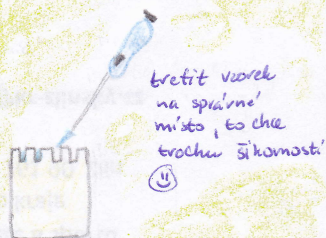 trefit vzorek
na správné
místo, to chce
trochu šikovnosti